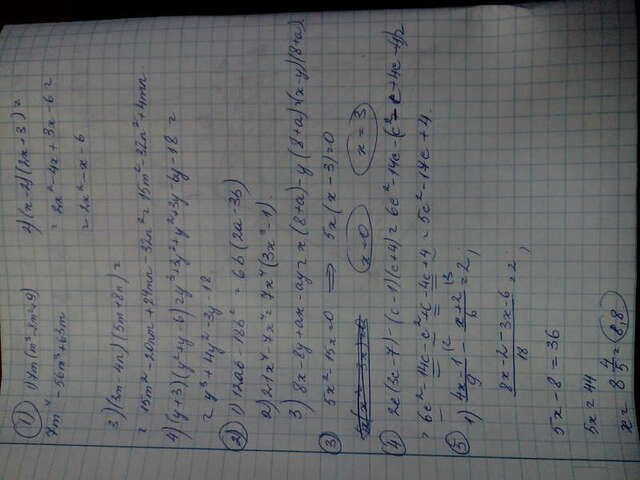 ① 1) 7m(m³-8m²+9)
7m⁴-56m³+63m
2) (x-2)(2x+3)=
= 2x²-4x+3x-6=
= 2x²-x-6
3) (3m-4n)(5m+8n)=
= 15m²-20nm+24mn-32n²=15m²-32n²+4mn
4) (y+3)(y²+y-6)=y³+3y²+y²+3y-6y-18=
= y³+4y²-3y-18
② 1) 12ab-18b²=6b(2a-3b)
2) 21x⁷-7x⁴=7x⁴(3x³-1).
3) 8x-8y+ax-ay=x(8+a)-y(8+a)=(x-y)(8+a)
③ 5x²-15x=0 ⇒ 5x(x-3)=0
x=0 x=3
④ 2c(3c-7)-(c-1)(c+4)=6c²-14c-(c²-c+4c-4)=
= 6c²-14c-c²+c-4c+4=5c²-17c+4.
⑤ 1) (4x-1)/9 - (x+2)/6 = 2,
(8x-2-3x-6)/18 = 2,
5x-8=36
5x=44
x= 8 4/5 = 8,8